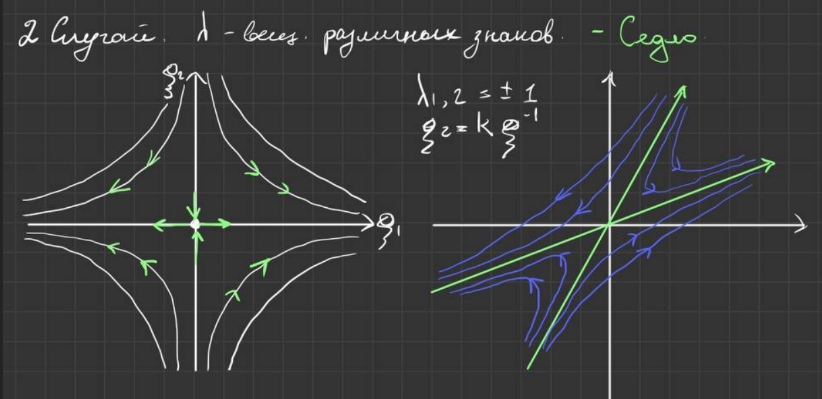 2 Случай. λ - вещ. различных знаков. - Седло
ξ₂
λ₁,₂ = ± 1
ξ₂ = k ξ⁻¹
ξ₁